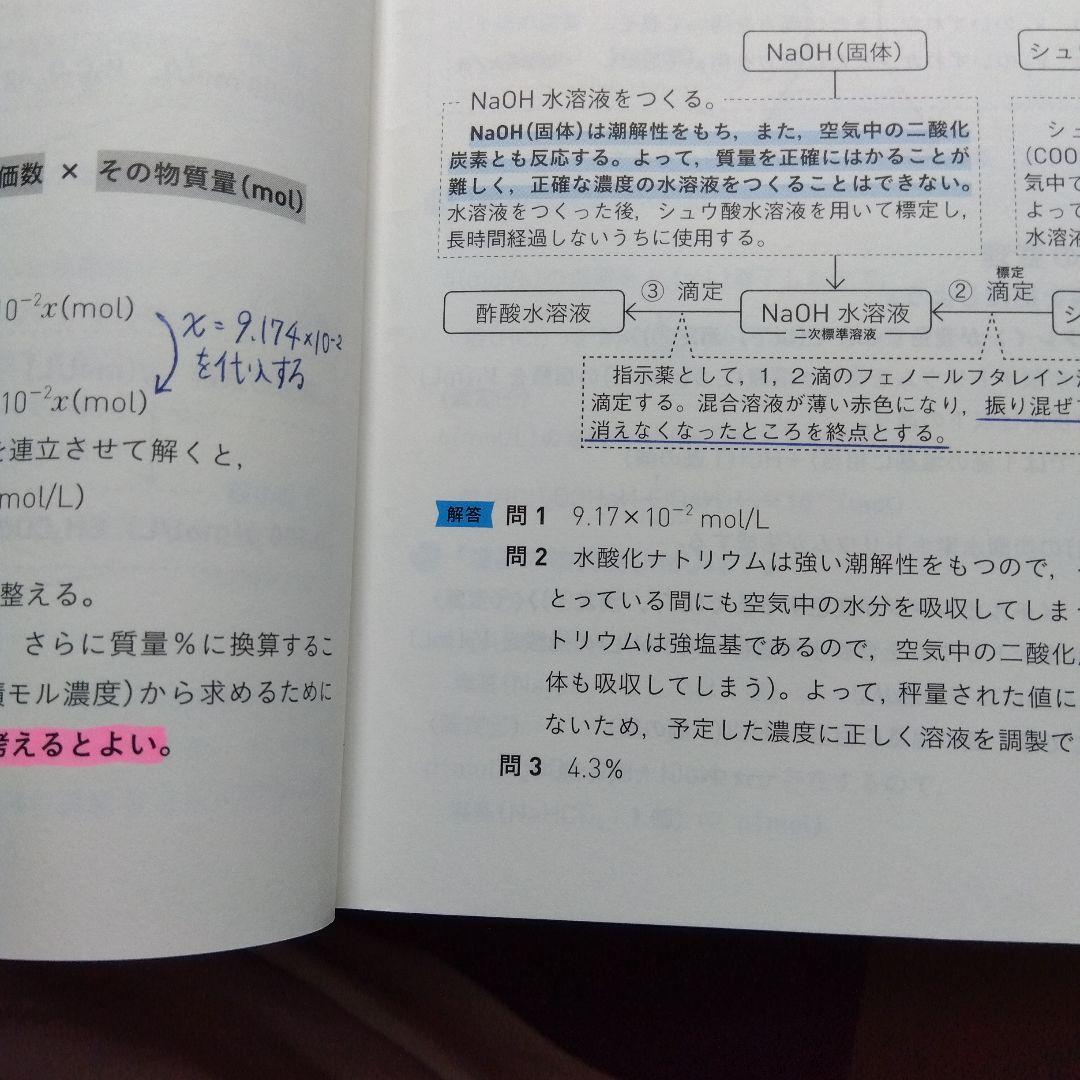 価数 × その物質量(mol)
10⁻²x(mol)
x = 9.174×10⁻²
を代入する
10⁻²x(mol)
を連立させて解くと，
(mol/L)
整える。
さらに質量％に換算するこ
モル濃度)から求めるために
考えるとよい。
NaOH(固体)
シュウ
NaOH 水溶液をつくる。
NaOH(固体)は潮解性をもち，また，空気中の二酸化
炭素とも反応する。よって，質量を正確にはかることが
難しく，正確な濃度の水溶液をつくることはできない。
水溶液をつくった後，シュウ酸水溶液を用いて標定し，
長時間経過しないうちに使用する。
シュ
(COO
気中で
よって
水溶液
酢酸水溶液
③ 滴定
NaOH 水溶液
二次標準溶液
標定
② 滴定
指示薬として，1，2滴のフェノールフタレイン
滴定する。混合溶液が薄い赤色になり，振り混ぜ
消えなくなったところを終点とする。
解答 問1 9.17×10⁻² mol/L
問2 水酸化ナトリウムは強い潮解性をもつので，
とっている間にも空気中の水分を吸収してしまう
トリウムは強塩基であるので，空気中の二酸化
体も吸収してしまう)。よって，秤量された値に
ないため，予定した濃度に正しく溶液を調製で
問3 4.3％